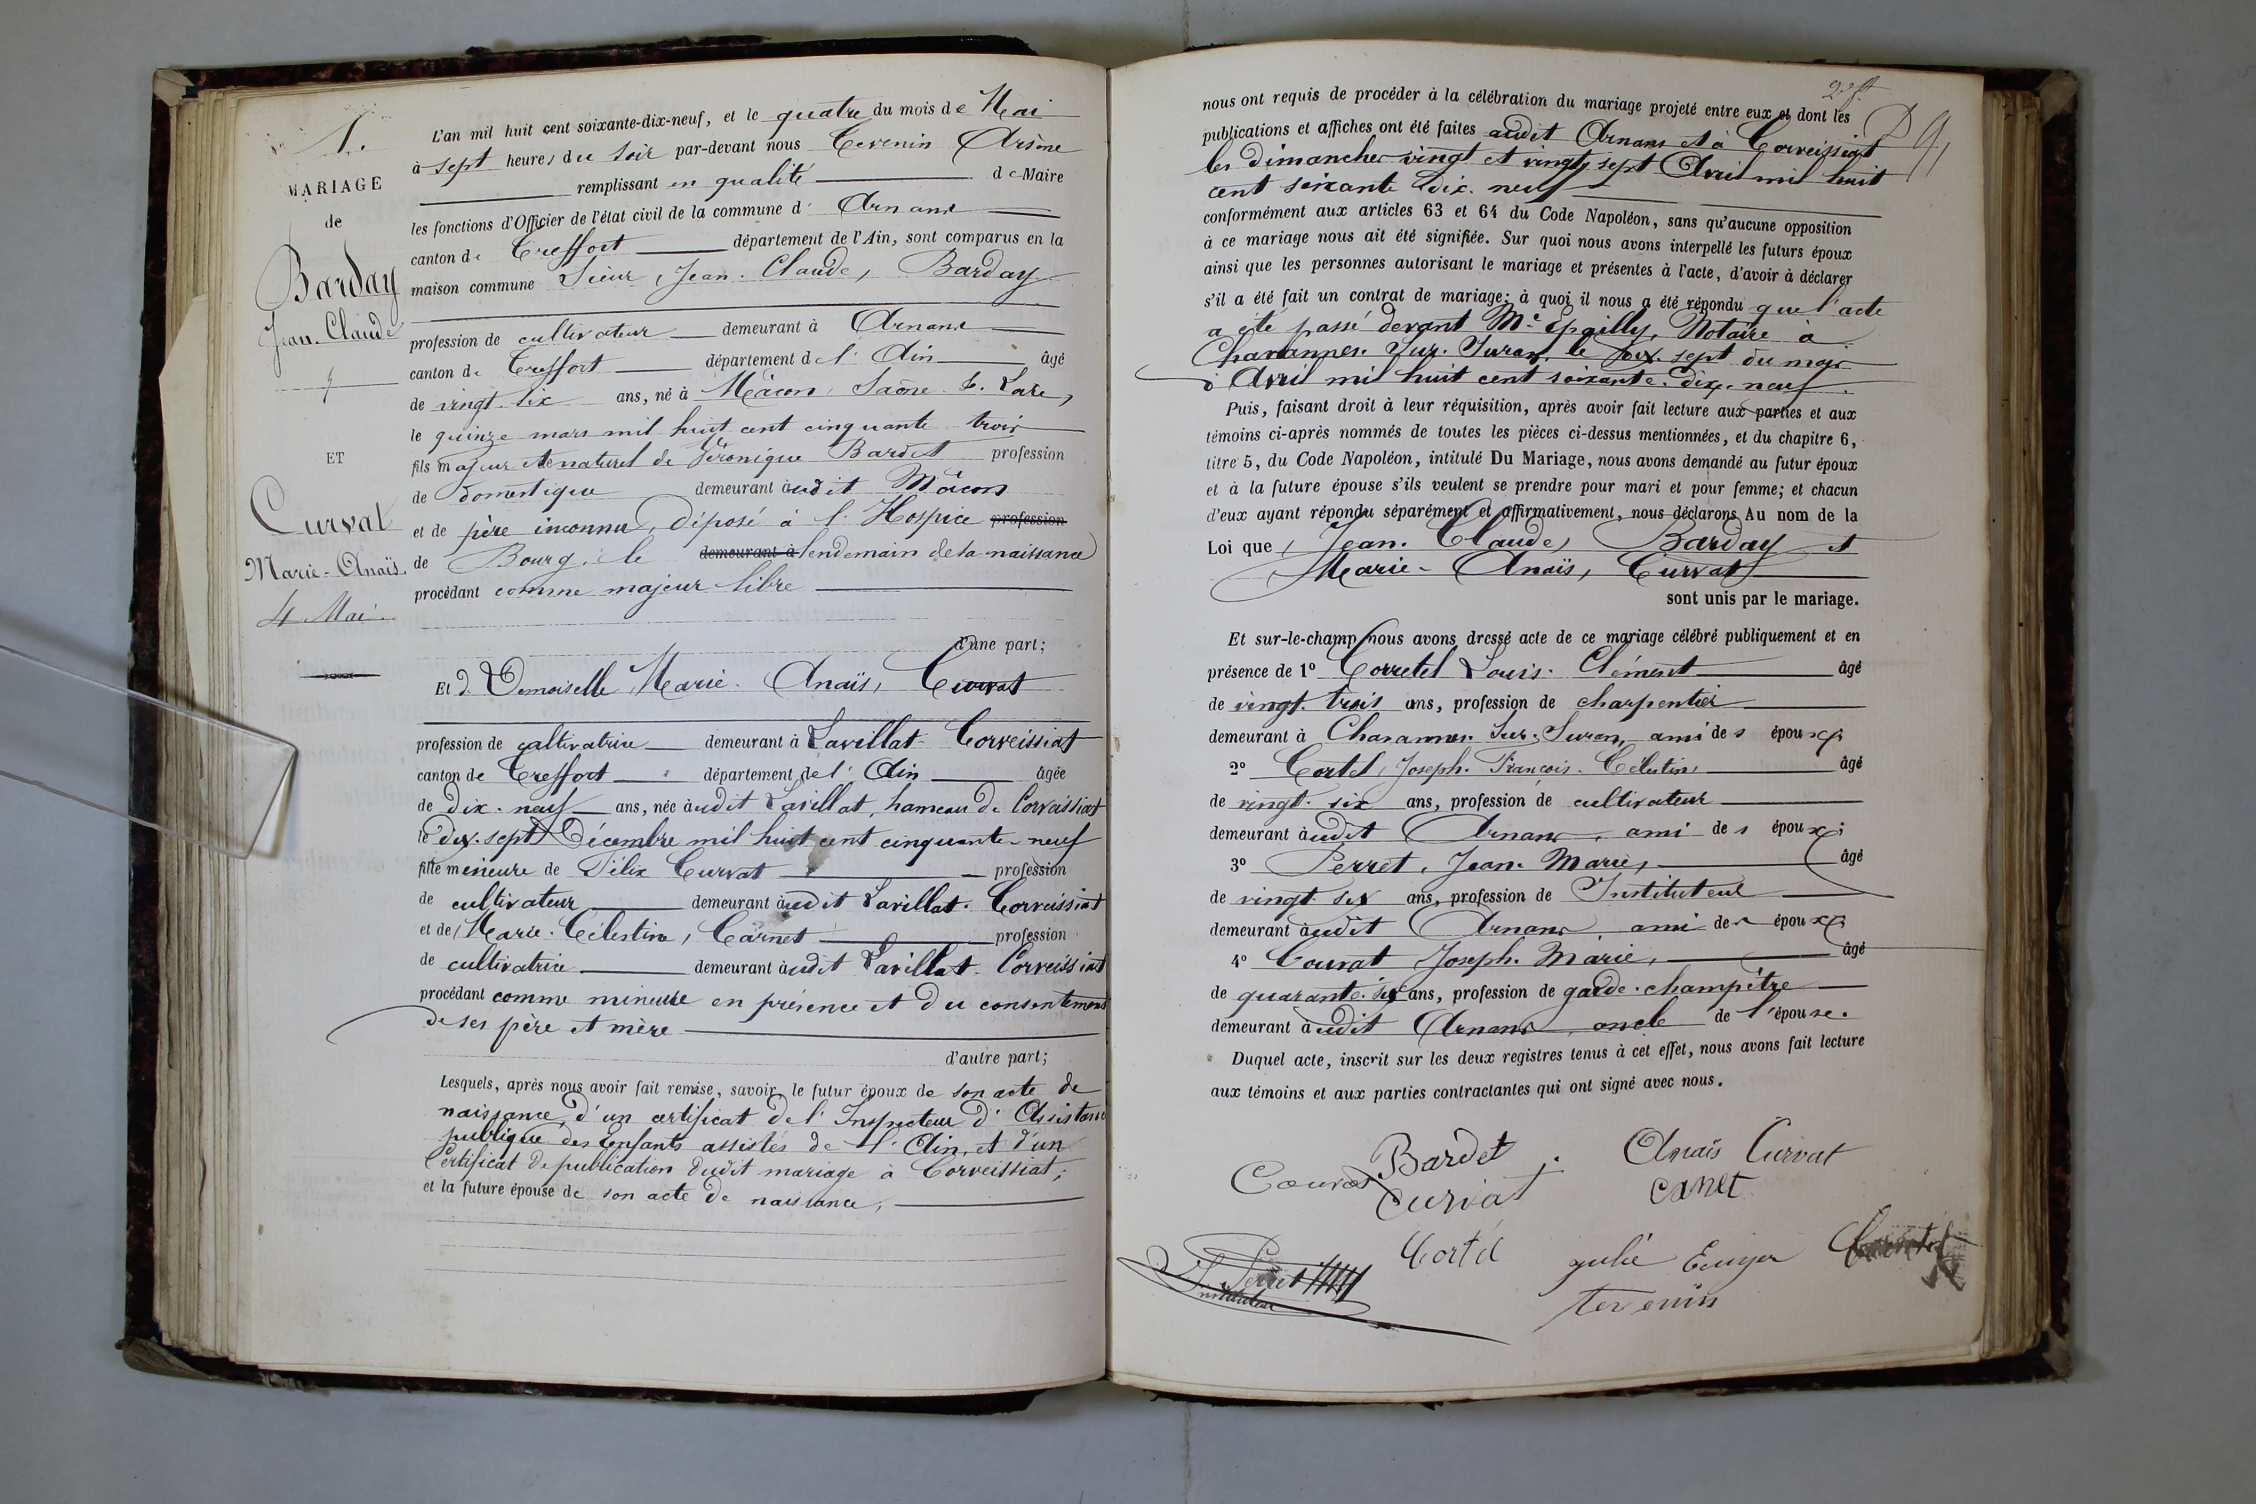 1.
MARIAGE
de
Barday
Jean-Claude
ET
Curvat
Marie-Anaïs
4 Mai
L'an mil huit cent soixante-dix-neuf, et le quatre du mois de Mai
à sept heures du soir par-devant nous Tevenin Arsène
remplissant en qualité de Maire
les fonctions d'Officier de l'état civil de la commune d' Arnans
canton de Treffort département de l'Ain, sont comparus en la
maison commune Sieur, Jean-Claude, Barday
profession de cultivateur demeurant à Arnans
canton de Treffort département de l' Ain âgé
de vingt-six ans, né à Mâcon, Saône-&-Loire,
le quinze mars mil huit cent cinquante trois
fils majeur et naturel de Véronique Bardet profession
de domestique demeurant audit Mâcon
et de père inconnu, déposé à l'Hospice profession
de Bourg, le demeurant à lendemain de sa naissance
procédant comme majeur libre
d'une part;
Et d. Demoiselle Marie-Anaïs, Curvat
profession de cultivatrice demeurant à Lavillat-Corveissiat
canton de Treffort département de l' Ain âgée
de dix-neuf ans, née audit Lavillat, hameau de Corveissiat
le dix-sept Décembre mil huit cent cinquante-neuf
fille mineure de Félix Curvat profession
de cultivateur demeurant audit Lavillat-Corveissiat
et de Marie-Célestine, Carnet profession
de cultivatrice demeurant audit Lavillat-Corveissiat
procédant comme mineure en présence et du consentement
de ses père et mère
d'autre part;
Lesquels, après nous avoir fait remise, savoir, le futur époux de son acte de
naissance, d'un certificat de l'Inspecteur d'Assistance
publique des Enfants assistés de l'Ain, et d'un
Certificat de publication dudit mariage à Corveissiat;
et la future épouse de son acte de naissance,
nous ont requis de procéder à la célébration du mariage projeté entre eux et dont les
publications et affiches ont été faites audit Arnans et à Corveissiat
les dimanches vingt et vingt-sept Avril mil huit
cent soixante dix-neuf
conformément aux articles 63 et 64 du Code Napoléon, sans qu'aucune opposition
à ce mariage nous ait été signifiée. Sur quoi nous avons interpellé les futurs époux
ainsi que les personnes autorisant le mariage et présentes à l'acte, d'avoir à déclarer
s'il a été fait un contrat de mariage; à quoi il nous a été répondu que l'acte
a été passé devant Me Epailly, Notaire à
Chavannes-Sur-Suran, le dix sept du mois
d'Avril mil huit cent soixante-dix-neuf.
Puis, faisant droit à leur réquisition, après avoir fait lecture aux parties et aux
témoins ci-après nommés de toutes les pièces ci-dessus mentionnées, et du chapitre 6,
titre 5, du Code Napoléon, intitulé Du Mariage, nous avons demandé au futur époux
et à la future épouse s'ils veulent se prendre pour mari et pour femme; et chacun
d'eux ayant répondu séparément et affirmativement, nous déclarons Au nom de la
Loi que Jean-Claude, Barday et
Marie-Anaïs, Curvat
sont unis par le mariage.
Et sur-le-champ nous avons dressé acte de ce mariage célébré publiquement et en
présence de 1° Corretel Louis-Clément âgé
de vingt-trois ans, profession de charpentier
demeurant à Chavannes-Sur-Suran, ami des époux;
2° Cortel, Joseph-François-Célestin, âgé
de vingt-six ans, profession de cultivateur
demeurant audit Arnans, ami des époux;
3° Perret, Jean-Marie, âgé
de vingt-six ans, profession de Instituteur
demeurant audit Arnans, ami des époux;
4° Couvat Joseph-Marie, âgé
de quarante-six ans, profession de garde-champêtre
demeurant audit Arnans oncle de l'épouse.
Duquel acte, inscrit sur les deux registres tenus à cet effet, nous avons fait lecture
aux témoins et aux parties contractantes qui ont signé avec nous.
Bardet j. Anaïs Curvat
Curvat
Perret
Instituteur
tevenin